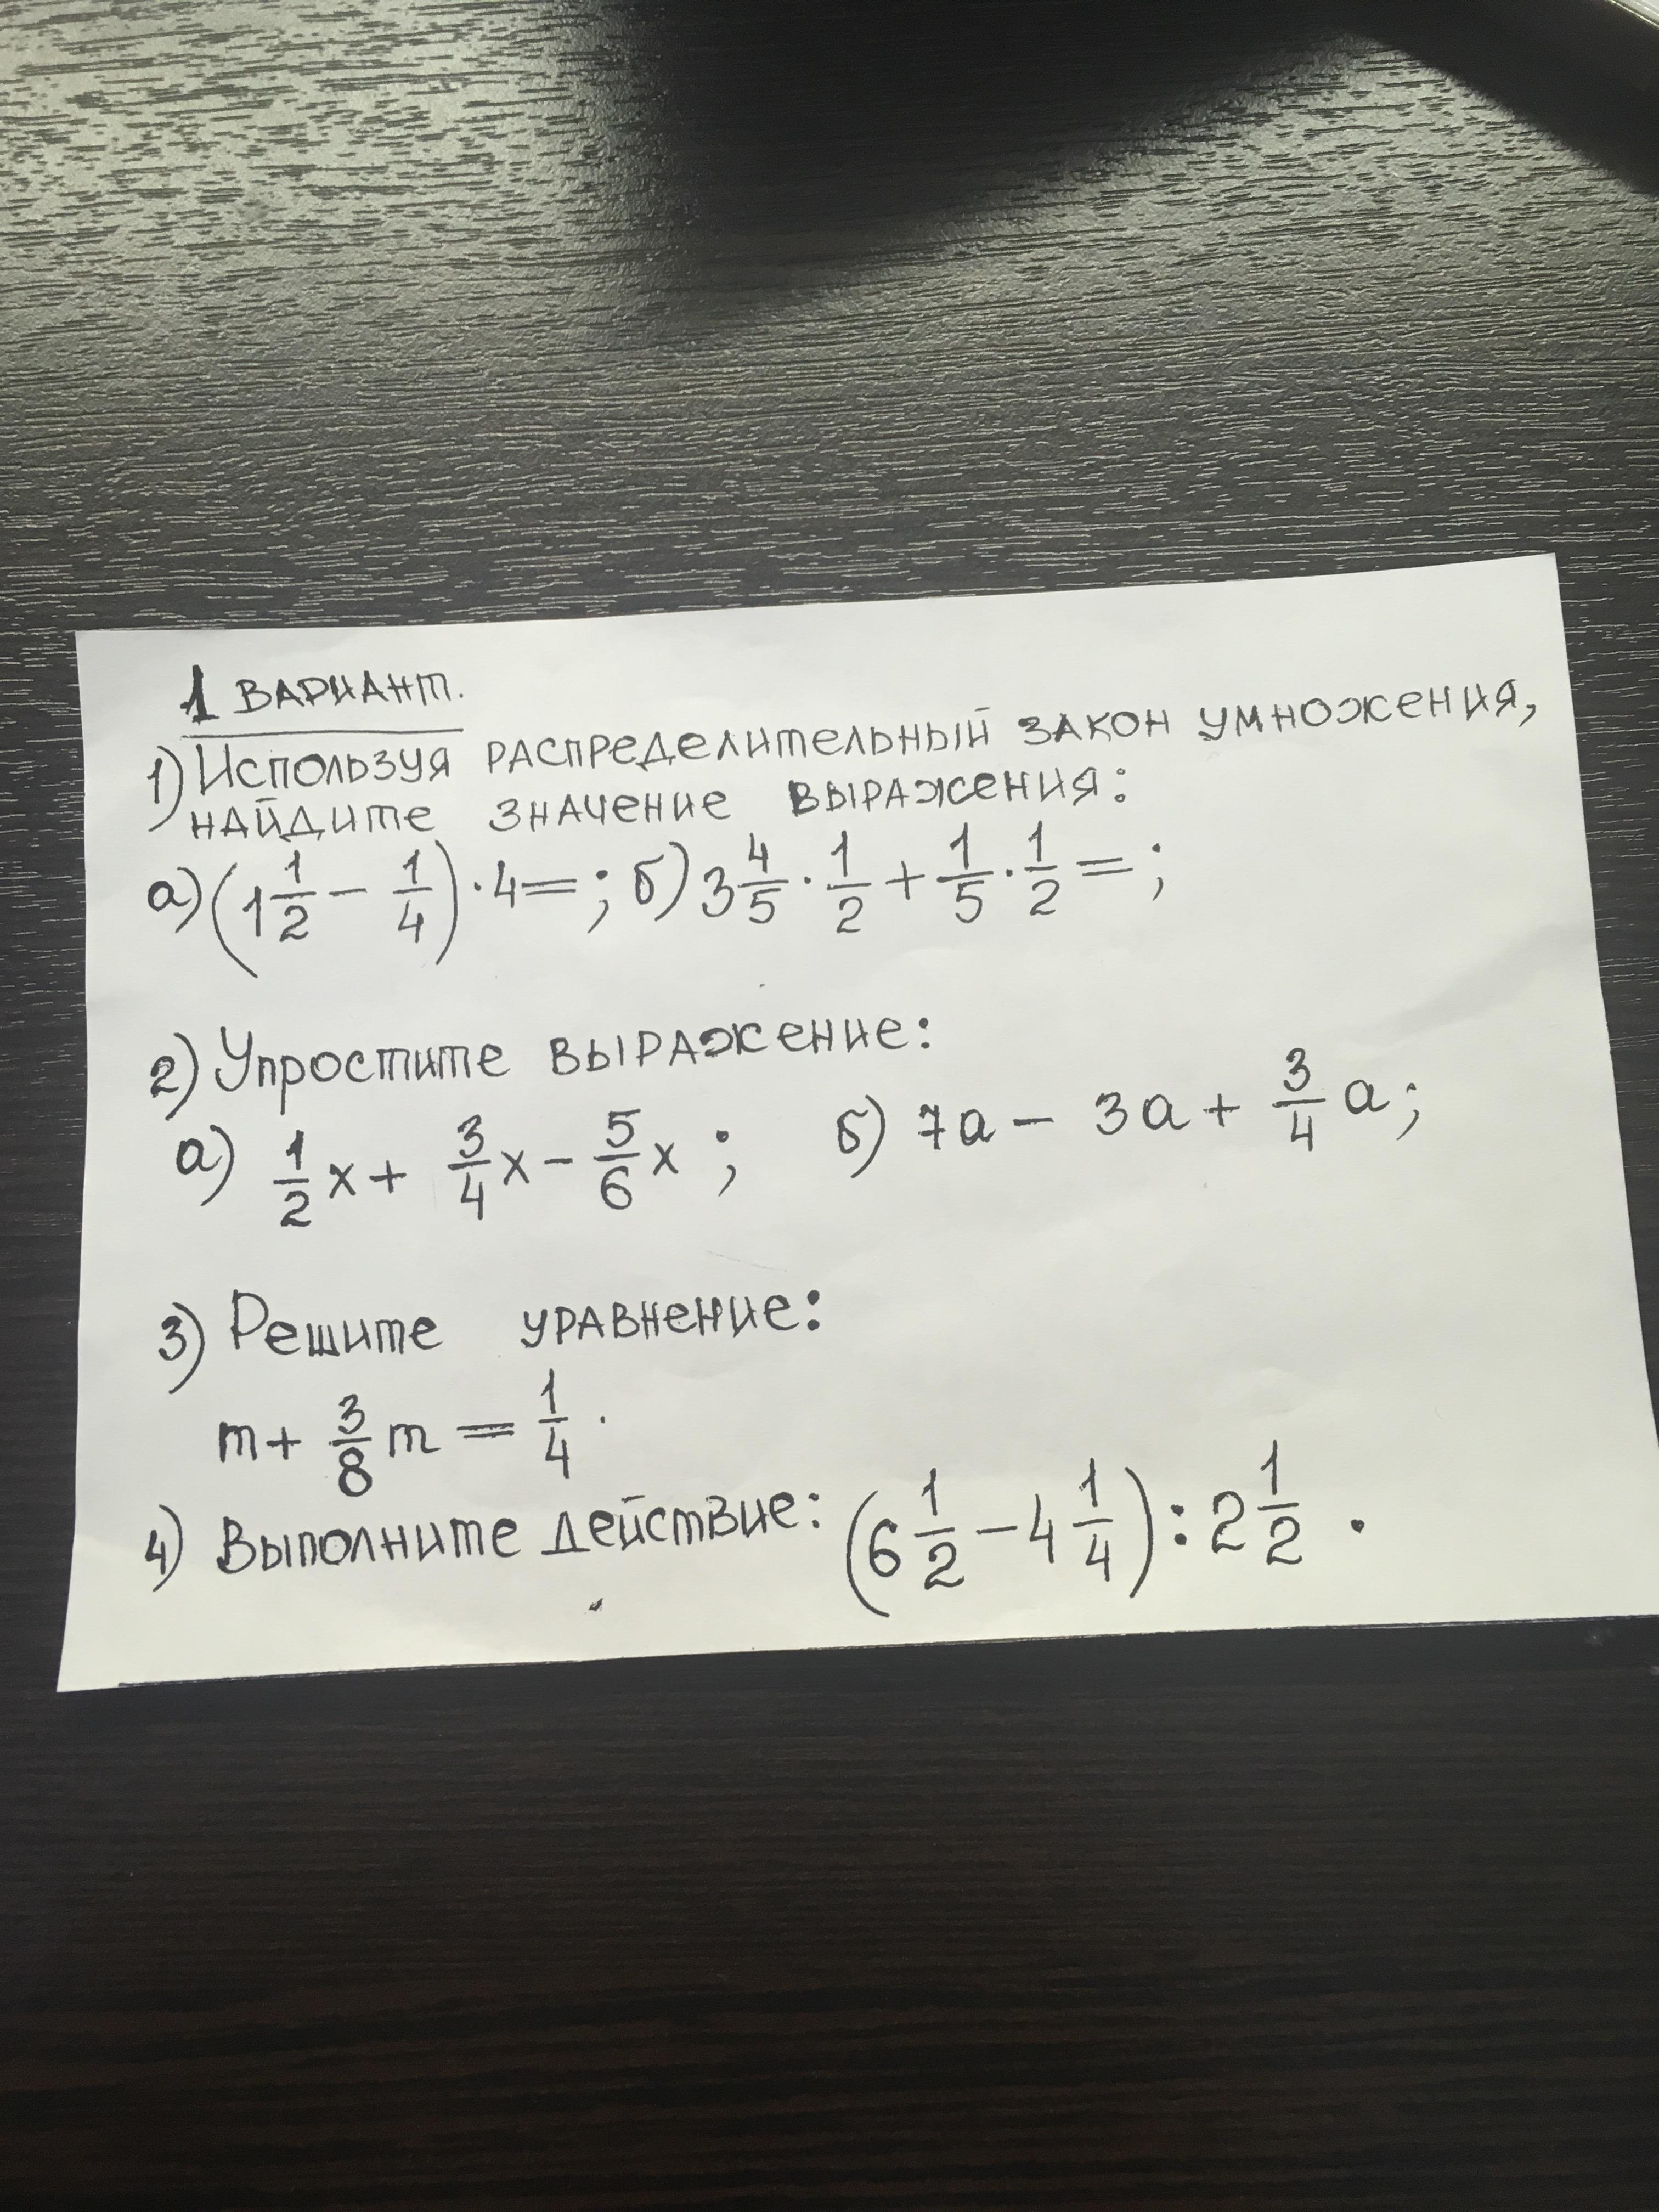 1 ВАРИАНТ.
1) Используя распределительный закон умножения,
найдите значение выражения:
а) (1 1/2 − 1/4) · 4 = ; б) 3 4/5 · 1/2 + 1/5 · 1/2 = ;
2) Упростите выражение:
а) 1/2 x + 3/4 x − 5/6 x ; б) 7а − 3а + 3/4 а ;
3) Решите уравнение:
m + 3/8 m = 1/4 .
4) Выполните действие: (6 1/2 − 4 1/4) : 2 1/2 .